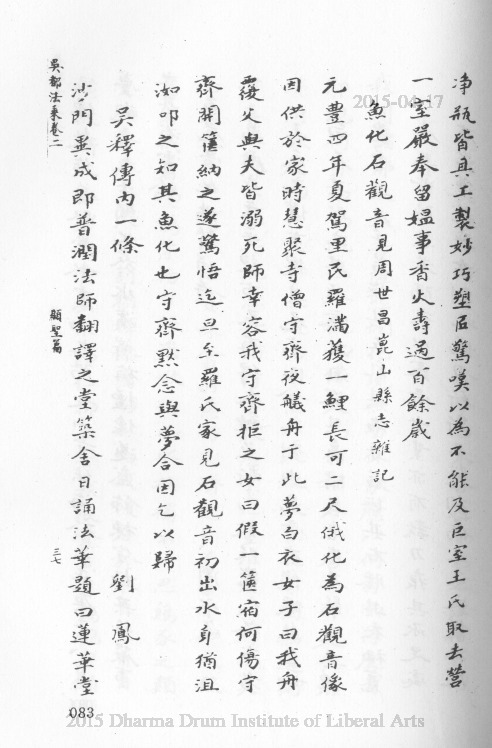 淨瓶皆具工製妙巧塑匠驚嘆以為不能及巨室王氏取去營
一室嚴奉留媼事香火壽過百餘歲
魚化石觀音見周世昌崑山縣志雜記
元豐四年夏駕里民羅滿獲一鯉長可二尺俄化為石觀音像
因供於家時慧聚寺僧守齊夜艤舟于此夢白衣女子曰我舟
覆父與夫皆溺死師幸容我守齊拒之女曰假一篋宿何傷守
齊開篋納之遂驚悟迄旦至羅氏家見石觀音初出水身猶沮
洳叩之知其魚化也守齊默念與夢合因乞以歸
吳釋傳內一條 劉鳳
沙門異成即普潤法師翻譯之堂築舍日誦法華題曰蓮華堂
吳都法乘卷二 顯聖篇 三七
083
2015-04-17
2015 Dharma Drum Institute of Liberal Arts